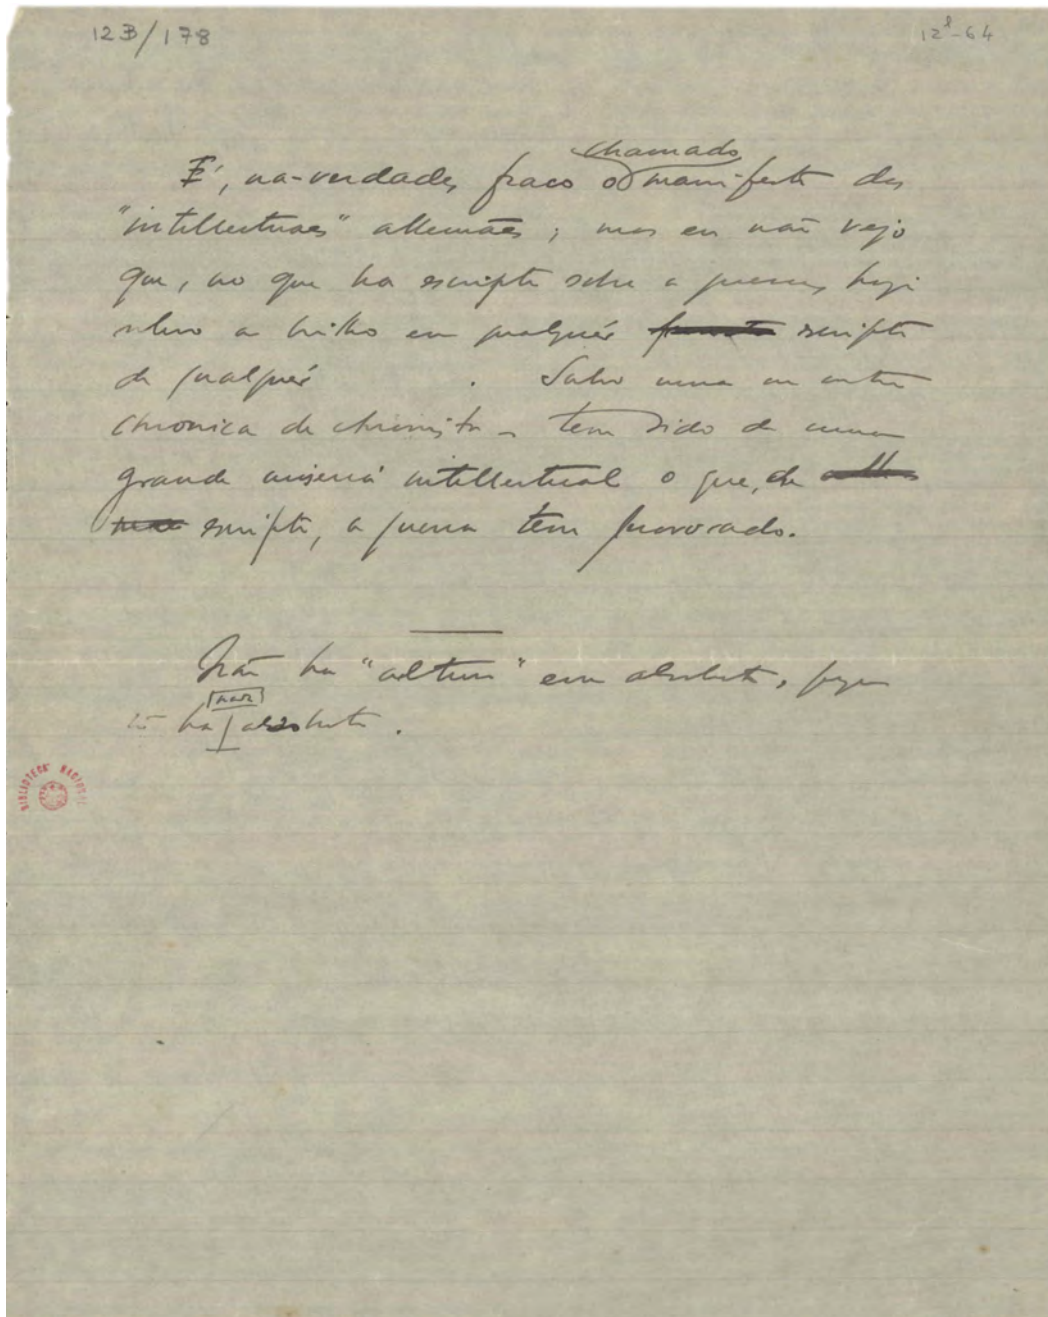 12B/178
12ª-64
É, na-verdade, fraco o chamado manifesto dos
"intellectuaes" allemães; mas eu não vejo
que, no que ha escripto sobre a guerra, haja
relevo a brilho em qualquér escripto
de qualquér . Salvo uma ou outra
chronica de chronista – tem sido de uma
grande miseria intellectual o que, de
escripto, a guerra tem provocado.
Não ha "altum" em absoluto,
ha absoluto.
BIBLIOTECA NACIONAL